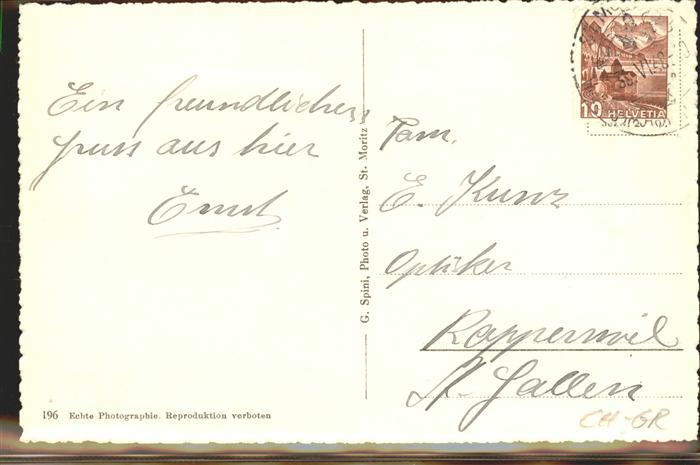 Ein freundlicher
gruss aus hier
Ernst
196 Echte Photographie. Reproduktion verboten
G. Spini, Photo u. Verlag, St. Moritz
10 HELVETIA
Fam.
E. Kunz
Optiker
Rapperswil
St. Gallen
CH-GR